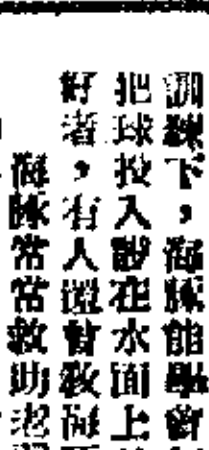 訓練下，海豚能學會
把球投入設在水面上
好者，有人還曾教海
海豚常常救助